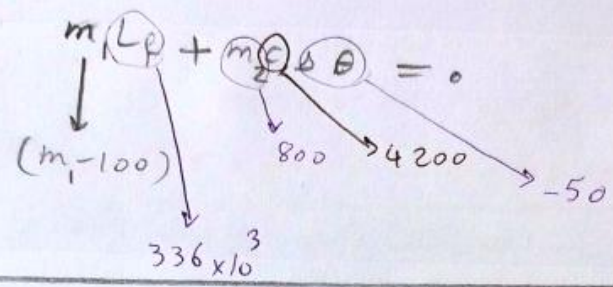 m₁L_F + m₂c Δ θ = ۰
(m₁-100)
800
4200
-50
336 x10³